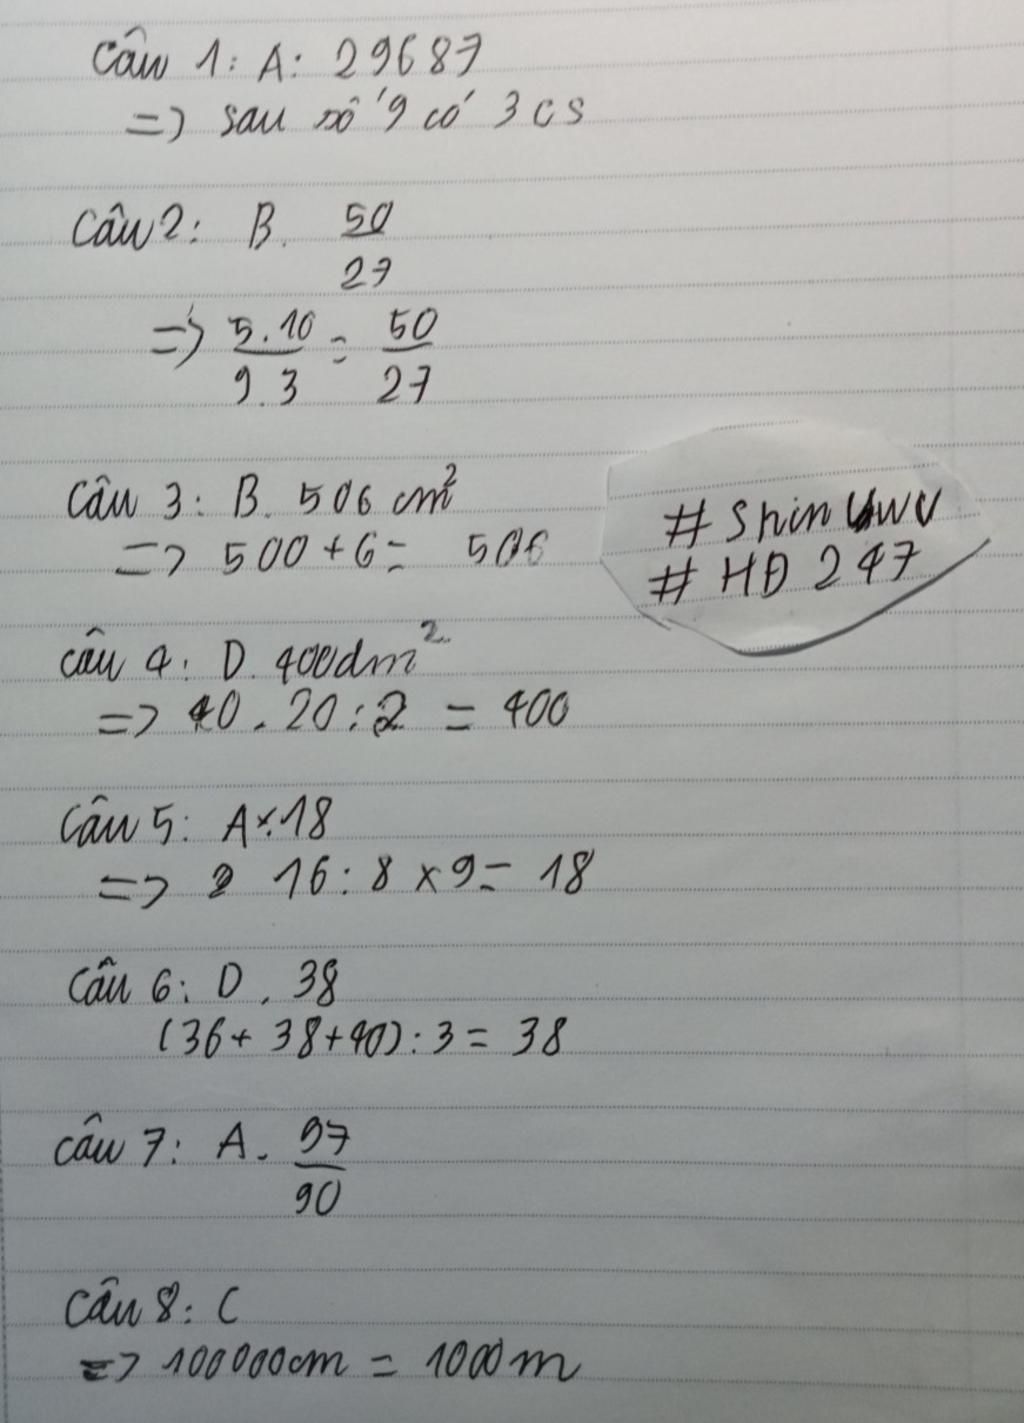 Câu 1: A: 29687
=> sau số 9 có 3 cs
Câu 2: B. 50/27
=> 5.10/9.3 = 50/27
Câu 3: B. 506 cm²
=> 500 + 6 = 506
# Shin UwU
# HĐ 247
Câu 4: D. 400dm²
=> 40 . 20 : 2 = 400
Câu 5: A. 18
=> 16 : 8 x 9 = 18
Câu 6: D. 38
(36 + 38 + 40) : 3 = 38
Câu 7: A. 97/90
Câu 8: C
=> 100000cm = 1000m